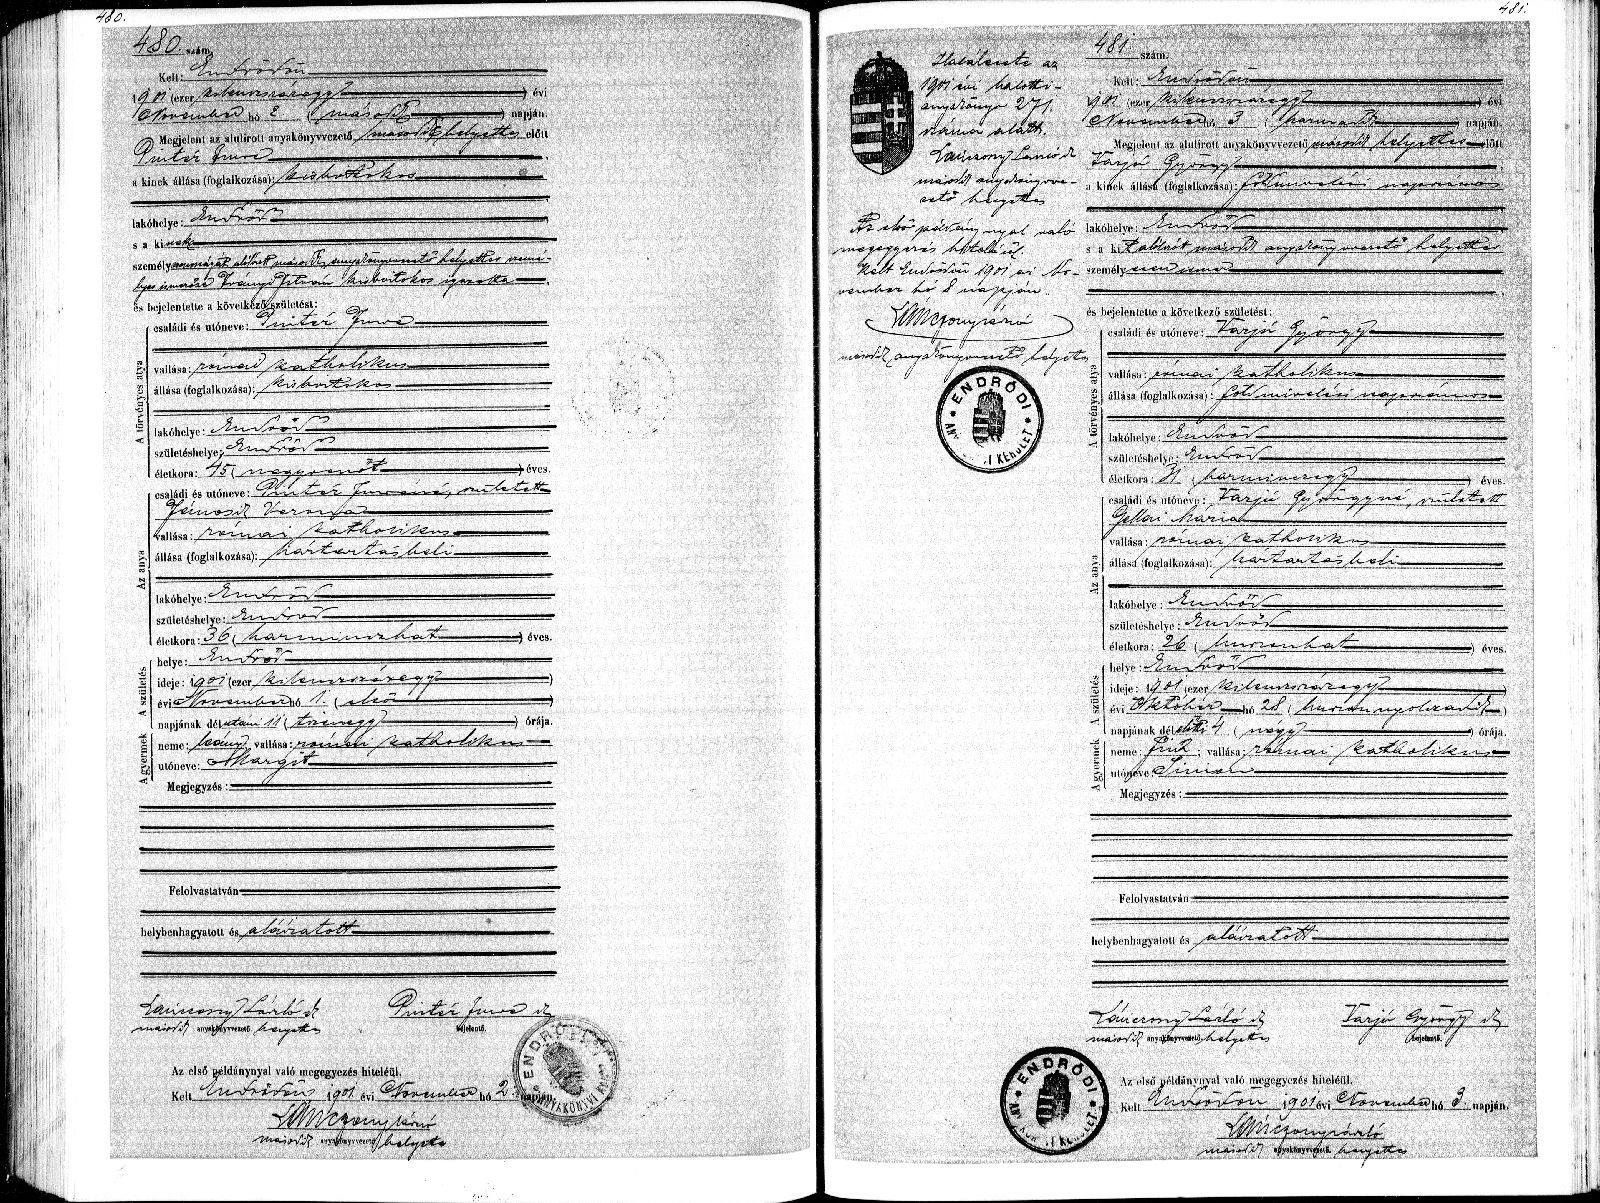 480.
480. szám.
Kelt: Endrődön
1901 (ezer kilenczszázegy) évi
November hó 2 (második) napján.
Megjelent az alulirott anyakönyvvezető második helyettes előtt
Pintér Imre
a kinek állása (foglalkozása): kisbirtokos
lakóhelye: Endrőd
s a kinek
személyazonosságát
helyes ismerőse Iványi István kisbirtokos igazolta
és bejelentette a következő születést:
A törvényes atya
családi és utóneve: Pintér Imre
vallása: római katholikus
állása (foglalkozása): kisbirtokos
lakóhelye: Endrőd
születéshelye: Endrőd
életkora: 45 (negyvenöt) éves.
Az anya
családi és utóneve: Pintér Imréné, született
Veronka
vallása: római katholikus
állása (foglalkozása): háztartásbeli
lakóhelye: Endrőd
születéshelye: Endrőd
életkora: 36 (harminczhat) éves.
A születés
helye: Endrőd
ideje: 1901 (ezer kilenczszázegy)
évi November hó 1. (első)
napjának délutáni 11 (tizenegy) órája.
A gyermek
neme: leány; vallása: római katholikus
utóneve: Margit
Megjegyzés:
Felolvastatván
helybenhagyatott és aláiratott
Lánczony László sk
második anyakönyvvezető helyettes
Pintér Imre sk
bejelentő.
Az első példánynyal való megegyezés hiteléül.
Kelt Endrődön 1901 évi November hó 2 napján.
Lánczony László
második anyakönyvvezető helyettes
ENDRŐDI ANYAKÖNYVI
481.
Halálesete az
1901 évi halotti
anyakönyv 271.
száma alatt.
Lánczony László sk
második anyakönyvve-
zető helyettes
Az első példánynyal való
megegyezés hiteléül.
Kelt Endrődön 1901 évi No-
vember hó 8 napján.
Lánczony László
második anyakönyvvezető helyettes
ENDRŐDI ANYAKÖNYVI KERÜLET
481. szám.
Kelt: Endrődön
1901 (ezer kilenczszázegy) évi
November hó 3 (harmadik) napján.
Megjelent az alulirott anyakönyvvezető második helyettes előtt
Varjú György
a kinek állása (foglalkozása): földmivelési napszámos
lakóhelye: Endrőd
s a kit alólirt második anyakönyvvezető helyettes
személyesen ismer
és bejelentette a következő születést:
A törvényes atya
családi és utóneve: Varjú György
vallása: római katholikus
állása (foglalkozása): földmivelési napszámos
lakóhelye: Endrőd
születéshelye: Endrőd
életkora: 31 (harminczegy) éves.
Az anya
családi és utóneve: Varjú Györgyné, született
Gellai Mária
vallása: római katholikus
állása (foglalkozása): háztartásbeli
lakóhelye: Endrőd
születéshelye: Endrőd
életkora: 26 (huszonhat) éves.
A születés
helye: Endrőd
ideje: 1901 (ezer kilenczszázegy)
évi Október hó 28 (huszonnyolczadik)
napjának délelőtti 4 (négy) órája.
A gyermek
neme: fiú; vallása: római katholikus
utóneve: Simon
Megjegyzés:
Felolvastatván
helybenhagyatott és aláiratott
Lánczony László sk
második anyakönyvvezető helyettes
Varjú György sk
bejelentő.
Az első példánynyal való megegyezés hiteléül.
Kelt Endrődön 1901 évi November hó 3. napján.
Lánczony László
második anyakönyvvezető helyettes
ENDRŐDI ANYAKÖNYVI KERÜLET